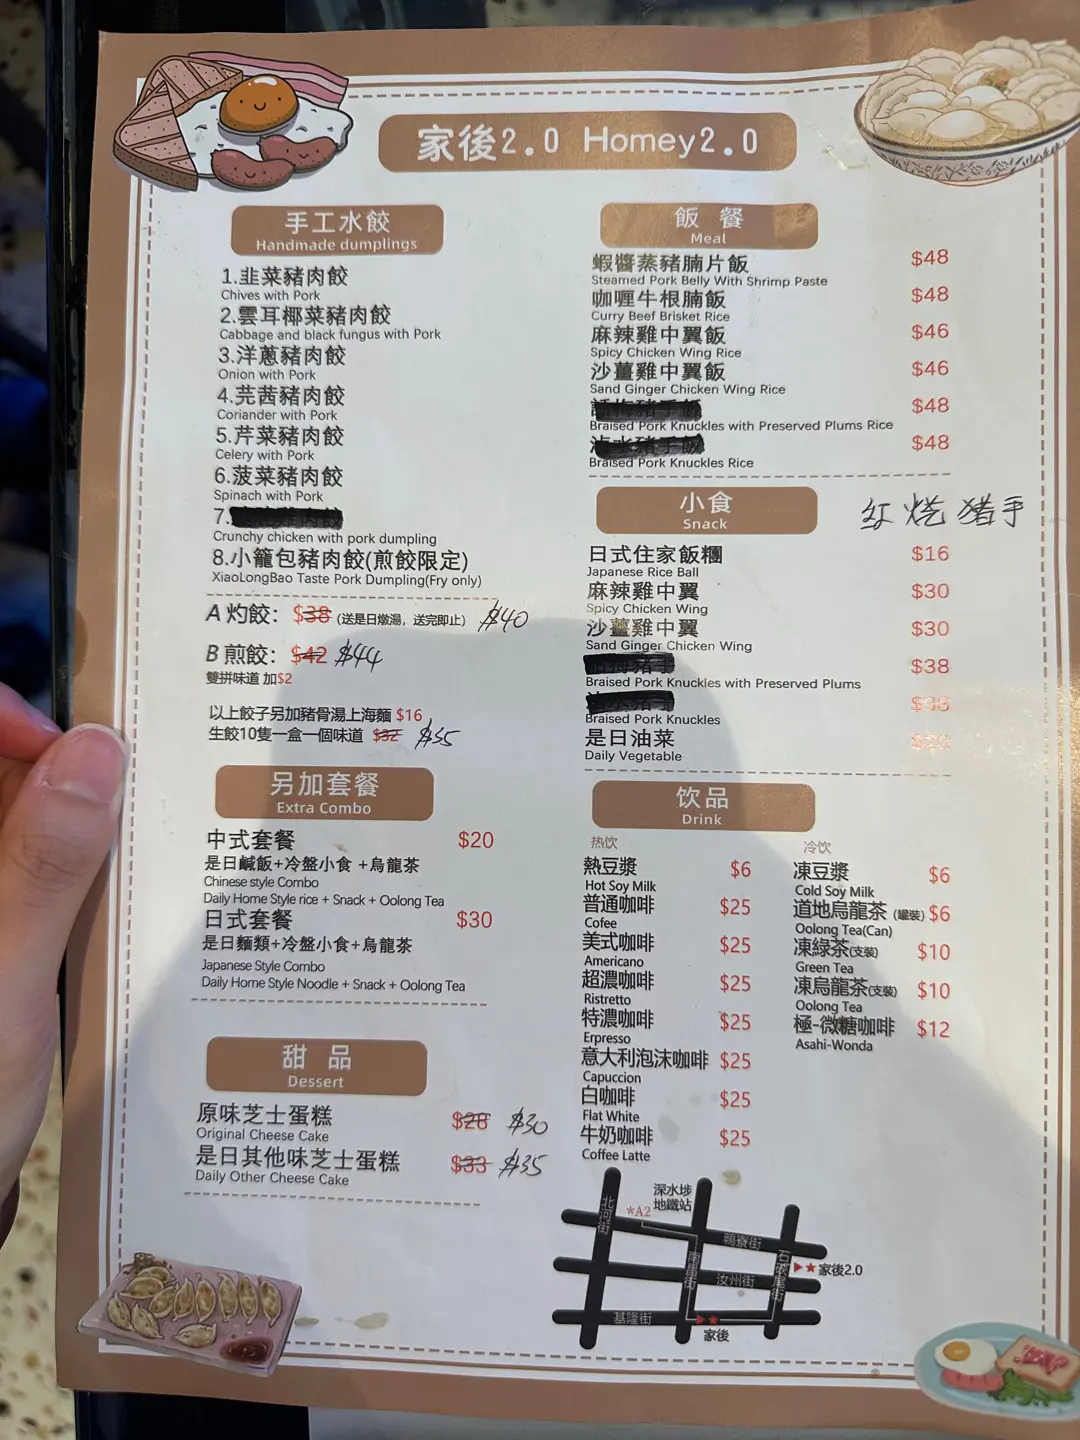 家後2.0 Homey2.0
手工水餃
Handmade dumplings
1.韭菜豬肉餃
Chives with Pork
2.雲耳椰菜豬肉餃
Cabbage and black fungus with Pork
3.洋蔥豬肉餃
Onion with Pork
4.芫茜豬肉餃
Coriander with Pork
5.芹菜豬肉餃
Celery with Pork
6.菠菜豬肉餃
Spinach with Pork
7.
Crunchy chicken with pork dumpling
8.小籠包豬肉餃(煎餃限定)
XiaoLongBao Taste Pork Dumpling(Fry only)
A 灼餃: $38 (送是日燉湯，送完即止) $40
B 煎餃: $42 $44
雙拼味道 加$2
以上餃子另加豬骨湯上海麵 $16
生餃10隻一盒一個味道 $32 $35
另加套餐
Extra Combo
中式套餐 $20
是日鹹飯+冷盤小食 +烏龍茶
Chinese style Combo
Daily Home Style rice + Snack + Oolong Tea
日式套餐 $30
是日麵類+冷盤小食+烏龍茶
Japanese Style Combo
Daily Home Style Noodle + Snack + Oolong Tea
甜 品
Dessert
原味芝士蛋糕 $28 $30
Original Cheese Cake
是日其他味芝士蛋糕 $33 $35
Daily Other Cheese Cake
飯 餐
Meal
蝦醬蒸豬腩片飯 $48
Steamed Pork Belly With Shrimp Paste
咖喱牛根腩飯 $48
Curry Beef Brisket Rice
麻辣雞中翼飯 $46
Spicy Chicken Wing Rice
沙薑雞中翼飯 $46
Sand Ginger Chicken Wing Rice
$48
Braised Pork Knuckles with Preserved Plums Rice
$48
Braised Pork Knuckles Rice
小食
Snack
紅燒豬手
日式住家飯糰 $16
Japanese Rice Ball
麻辣雞中翼 $30
Spicy Chicken Wing
沙薑雞中翼 $30
Sand Ginger Chicken Wing
$38
Braised Pork Knuckles with Preserved Plums
$38
Braised Pork Knuckles
是日油菜 $20
Daily Vegetable
饮品
Drink
热饮
熱豆漿 $6
Hot Soy Milk
普通咖啡 $25
Cofee
美式咖啡 $25
Americano
超濃咖啡 $25
Ristretto
特濃咖啡 $25
Erpresso
意大利泡沫咖啡 $25
Capuccion
白咖啡 $25
Flat White
牛奶咖啡 $25
Coffee Latte
冷饮
凍豆漿 $6
Cold Soy Milk
道地烏龍茶 (罐裝) $6
Oolong Tea(Can)
凍綠茶(支裝) $10
Green Tea
凍烏龍茶(支裝) $10
Oolong Tea
極-微糖咖啡 $12
Asahi-Wonda
深水埗
地鐵站
*A2
北河街
鴨寮街
南昌街
石硤尾街
汝州街
家後2.0
基隆街
家後